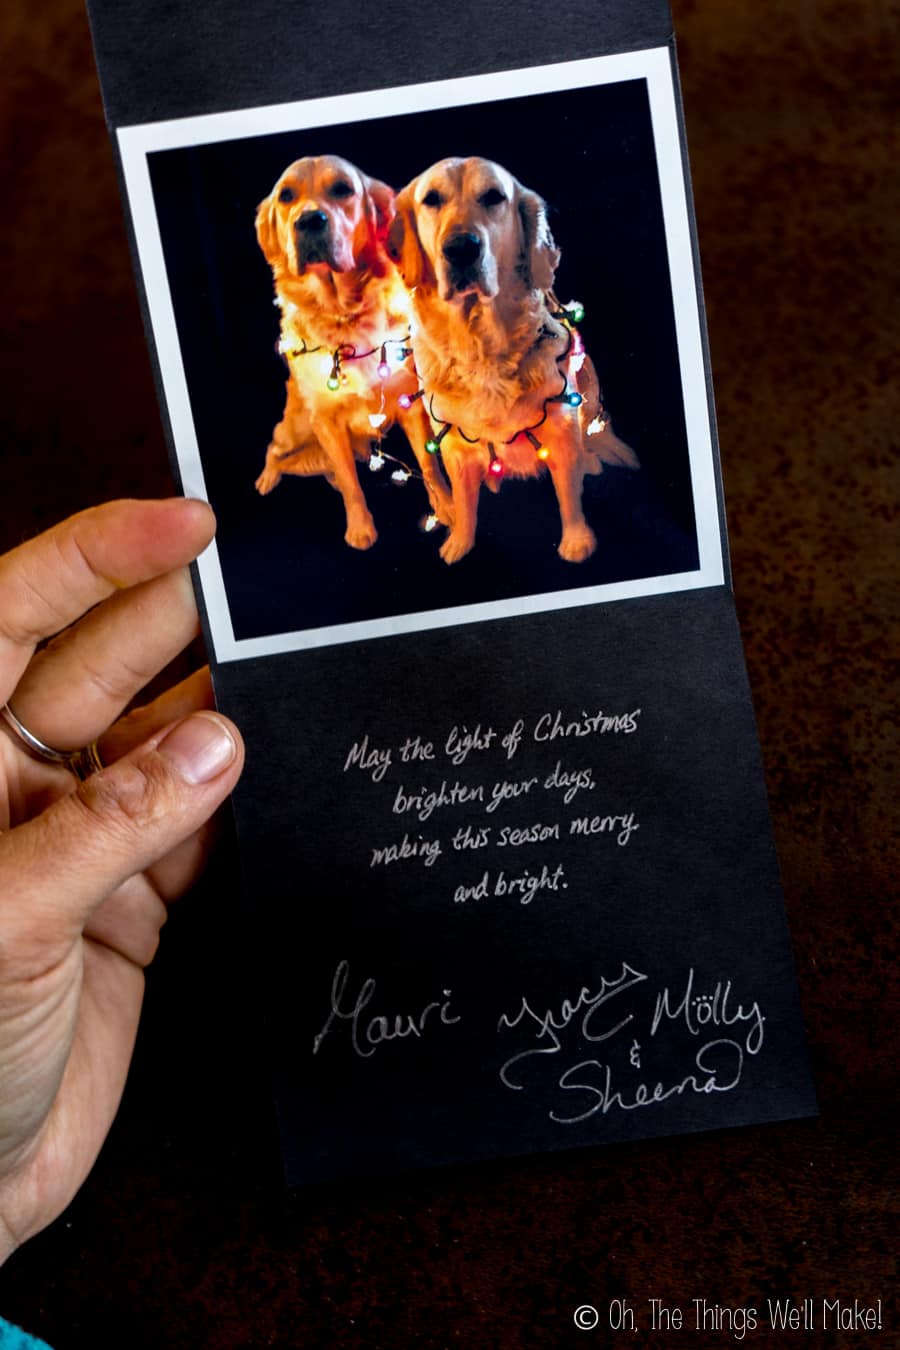 May the light of Christmas
brighten your days,
making this season merry
and bright.
Mauri Tracy Molly
&
Sheena
© Oh, The Things We'll Make!